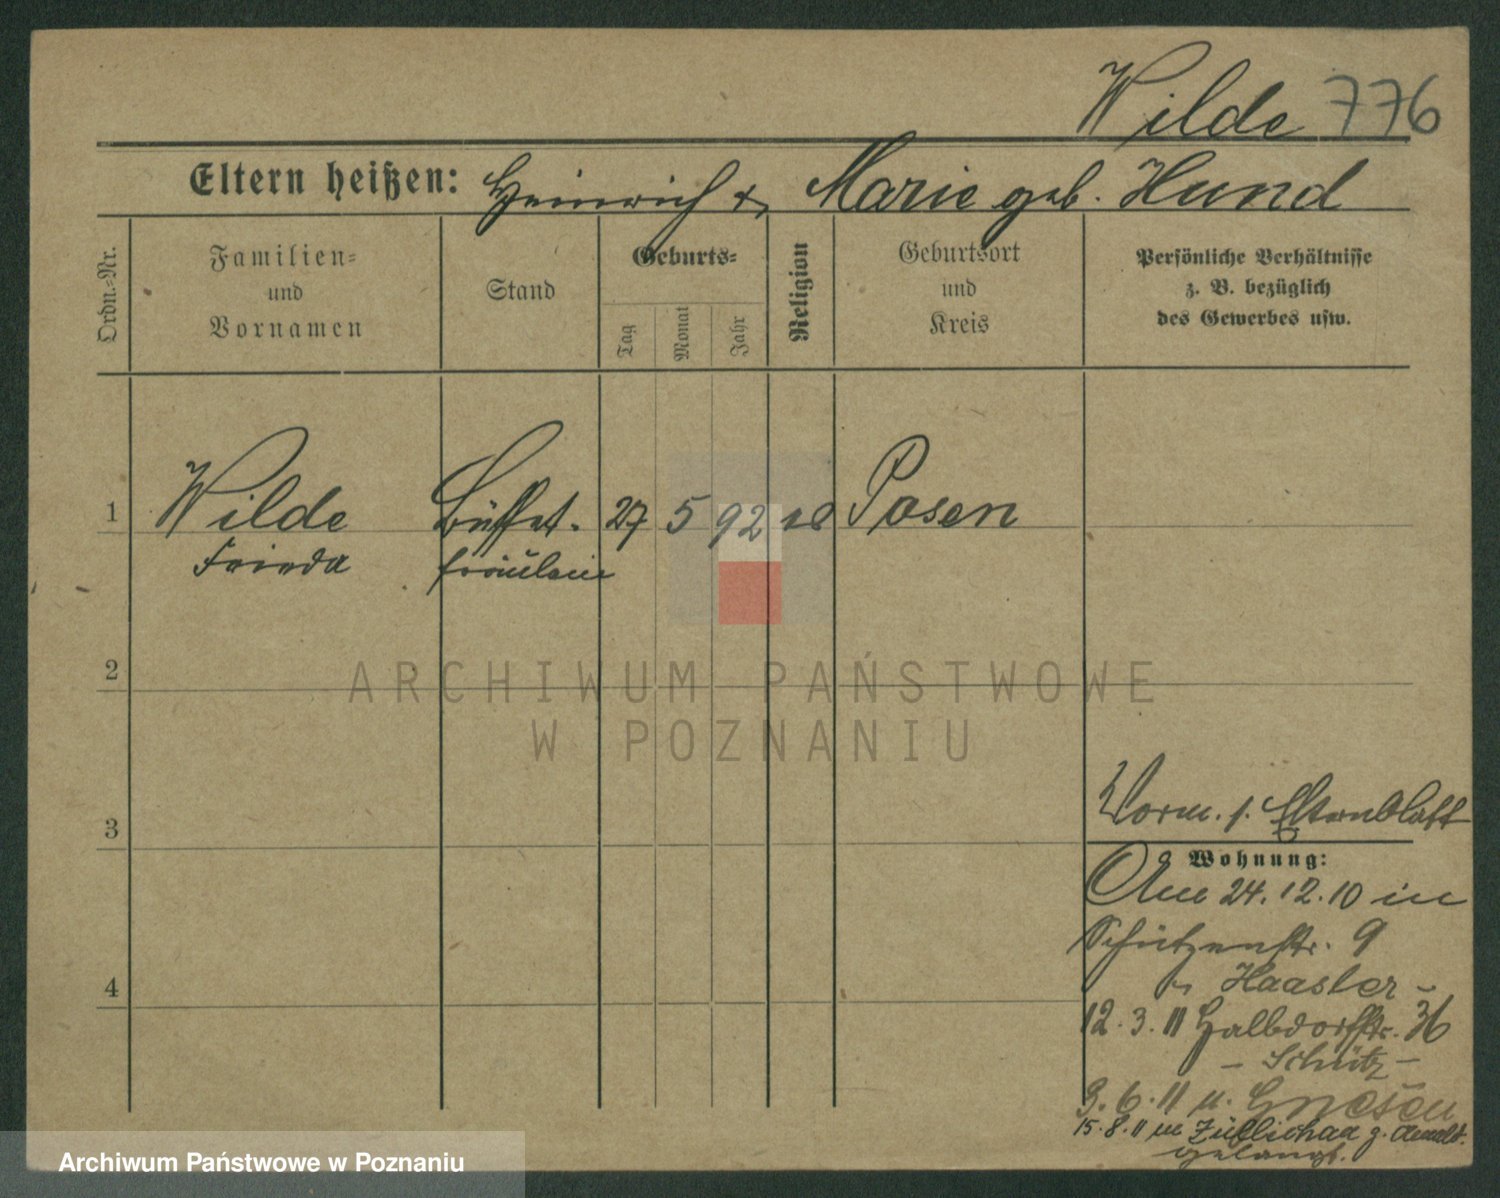 Wilde 776
Eltern heißen: Heinrich & Marie geb. Hund
Ordn.-Nr.
Familien- und Vornamen
Stand
Geburts-
Tag
Monat
Jahr
Religion
Geburtsort und Kreis
Persönliche Verhältnisse
z. B. bezüglich
des Gewerbes usw.
1 Wilde Büffet- 27 5 92 Posen
Frieda fräulein
2
3
4
ARCHIWUM PAŃSTWOWE
W POZNANIU
Vorm. s. Elternblatt
Wohnung:
Am 24.12.10 in
Schützenstr. 9
Haasler -
12.3.11 Halbdorfstr. 36
- Schütz -
9.6.11 n. Gnesen
15.8.11 Züllichau z. Anmeld.
gelangt.
Archiwum Państwowe w Poznaniu